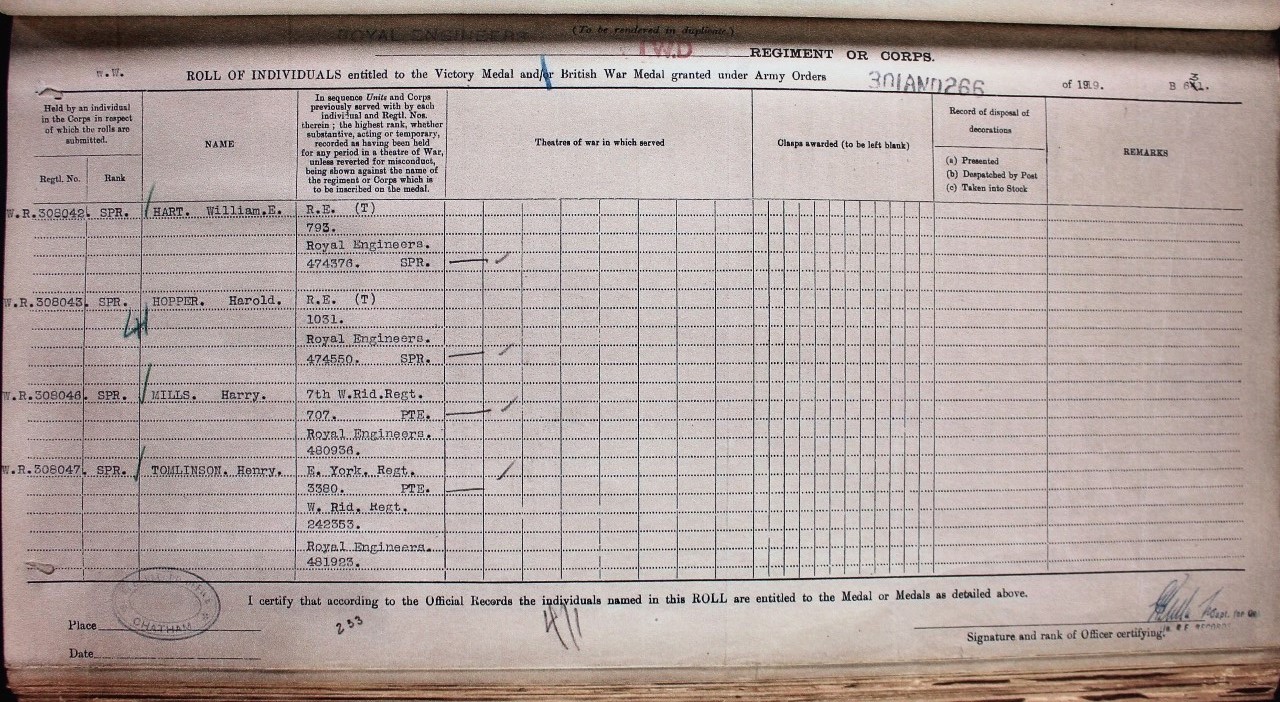 (To be rendered in duplicate.)
ROYAL ENGINEERS
I.W.D
REGIMENT OR CORPS.
W.W.
ROLL OF INDIVIDUALS entitled to the Victory Medal and/or British War Medal granted under Army Orders
301AND266
of 1919.
Held by an individual
in the Corps in respect
of which the rolls are
submitted.
Regtl. No.
Rank
NAME
In sequence Units and Corps
previously served with by each
individual and Regtl. Nos.
therein; the highest rank, whether
substantive, acting or temporary,
recorded as having been held
for any period in a theatre of War,
unless reverted for misconduct,
being shown against the name of
the regiment or Corps which is
to be inscribed on the medal.
Theatres of war in which served
Clasps awarded (to be left blank)
Record of disposal of
decorations
(a) Presented
(b) Despatched by Post
(c) Taken into Stock
REMARKS
W.R.308042. SPR. HART. William.E. R.E. (T)
793.
Royal Engineers.
474376. SPR.
W.R.308043. SPR. HOPPER. Harold. R.E. (T)
1031.
Royal Engineers.
474550. SPR.
W.R.308046. SPR. MILLS. Harry. 7th W.Rid.Regt.
707. PTE.
Royal Engineers.
480936.
W.R.308047. SPR. TOMLINSON. Henry. E. York. Regt.
3380. PTE.
W. Rid. Regt.
242353.
Royal Engineers.
481923.
I certify that according to the Official Records the individuals named in this ROLL are entitled to the Medal or Medals as detailed above.
Place
CHATHAM
233
411
Date
Signature and rank of Officer certifying.